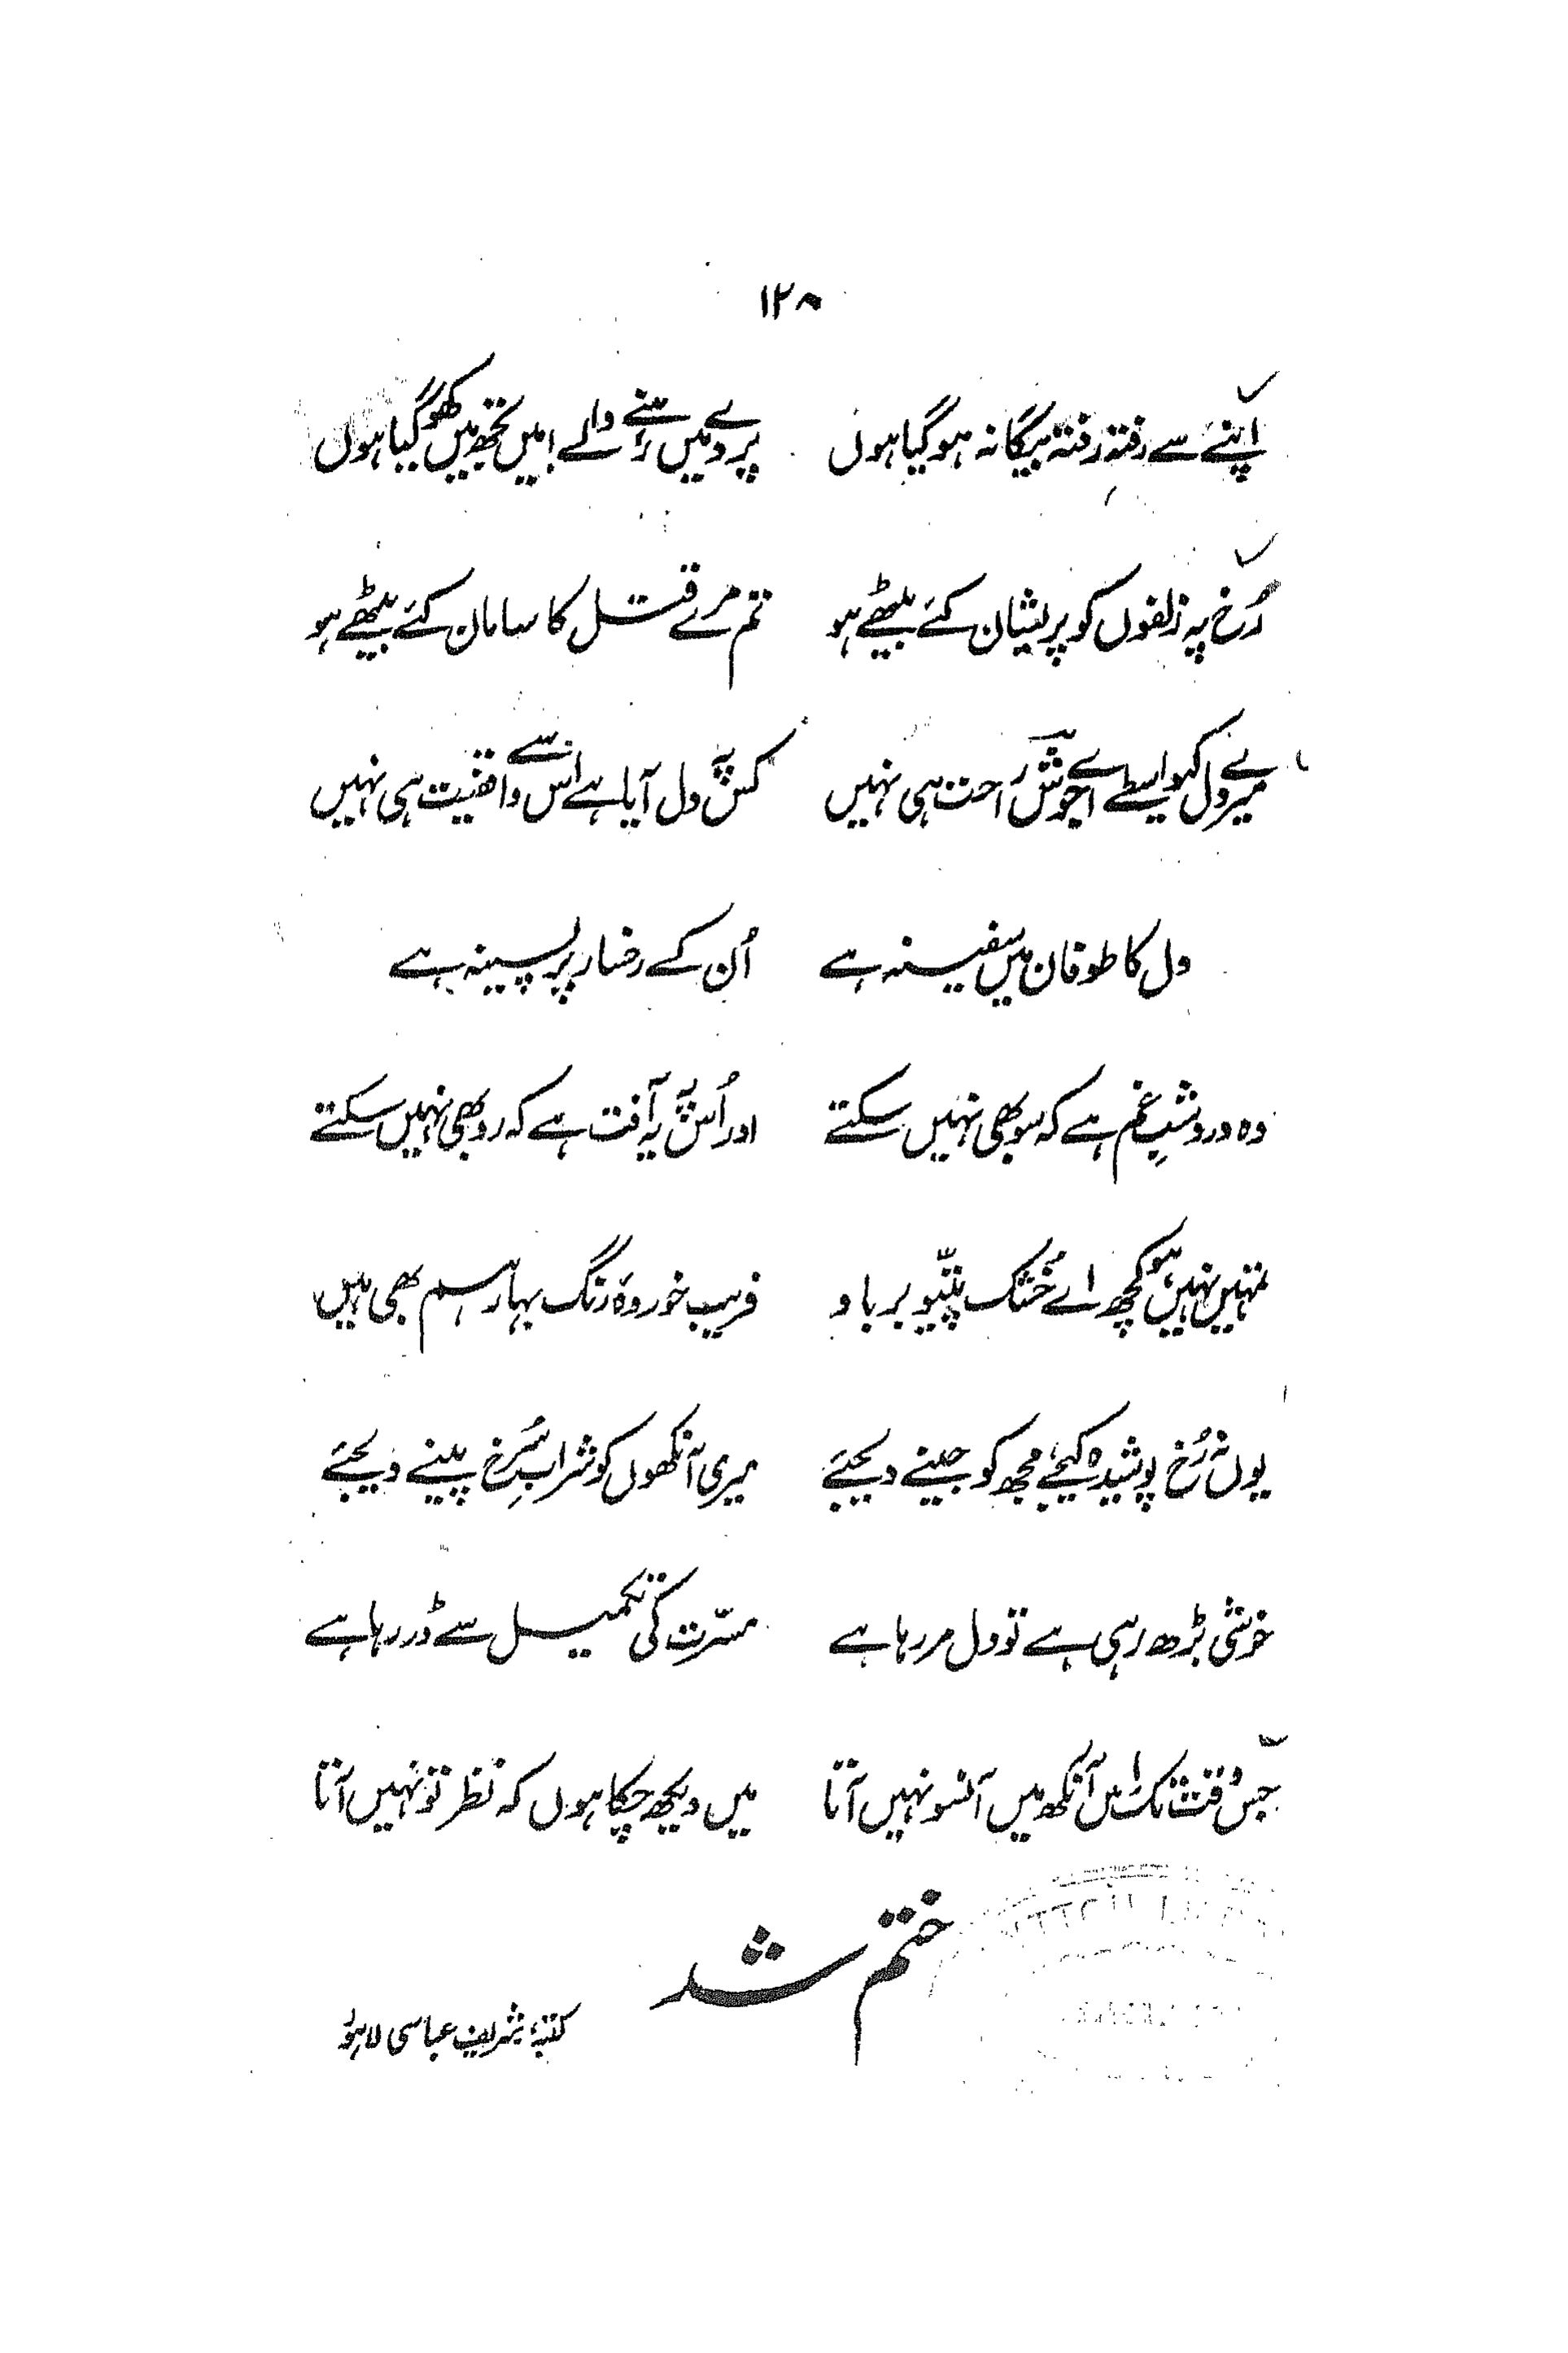 ۱۲۸
اپنے سے رفتہ رفتہ بیگانہ ہو گیا ہوں پردے میں رہنے والے! میں تجھ میں کھو گیا ہوں
رُخ پہ زلفوں کو پریشان کئے بیٹھے ہو تم مرے قتل کا سامان کئے بیٹھے ہو
میرے دل کیواسطے اے جوش راحت ہی نہیں کس پہ دل آیا ہے اس سے واقفیت ہی نہیں
دل کا طوفان میں سفینہ ہے اُن کے رخسار پر پسینہ ہے
وہ دردِ شبِ غم ہے کہ سو بھی نہیں سکتے اور اُس پہ یہ آفت ہے کہ رو بھی نہیں سکتے
نہیں نہیں ہو کچھ اے خُشک پتّیو برباد فریب خوردۂ رنگ بہار ہم بھی ہیں
یوں نہ رُخ پوشیدہ کیجئے مجھ کو جینے دیجئے میری آنکھوں کو شرابِ سُرخ پینے دیجئے
خوشی بڑھ رہی ہے تو دل مر رہا ہے مسّرت کی تکمیل سے ڈر رہا ہے
جس وقت تک اس آنکھ میں آنسو نہیں آتا میں دیکھ چکا ہوں کہ نظر تو نہیں آتا
ختم شد
کتبہٗ شریف عباسی لاہور